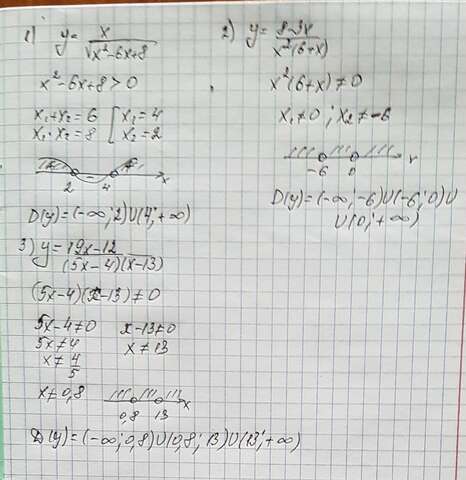 1) y = x / √(x²-6x+8)
x²-6x+8>0
x₁+x₂=6 [ x₁=4
x₁·x₂=8 [ x₂=2
+ - +
2 4 x
D(y)=(-∞; 2)∪(4; +∞)
2) y = (8-3x) / (x²(6+x))
x²(6+x)≠0
x₁≠0; x₂≠-6
-6 0 x
D(y)=(-∞; -6)∪(-6; 0)∪
∪(0; +∞)
3) y = (19x-12) / ((5x-4)(x-13))
(5x-4)(x-13)≠0
5x-4≠0 x-13≠0
5x≠4 x≠13
x≠4/5
x≠0,8
0,8 13 x
D(y)=(-∞; 0,8)∪(0,8; 13)∪(13; +∞)